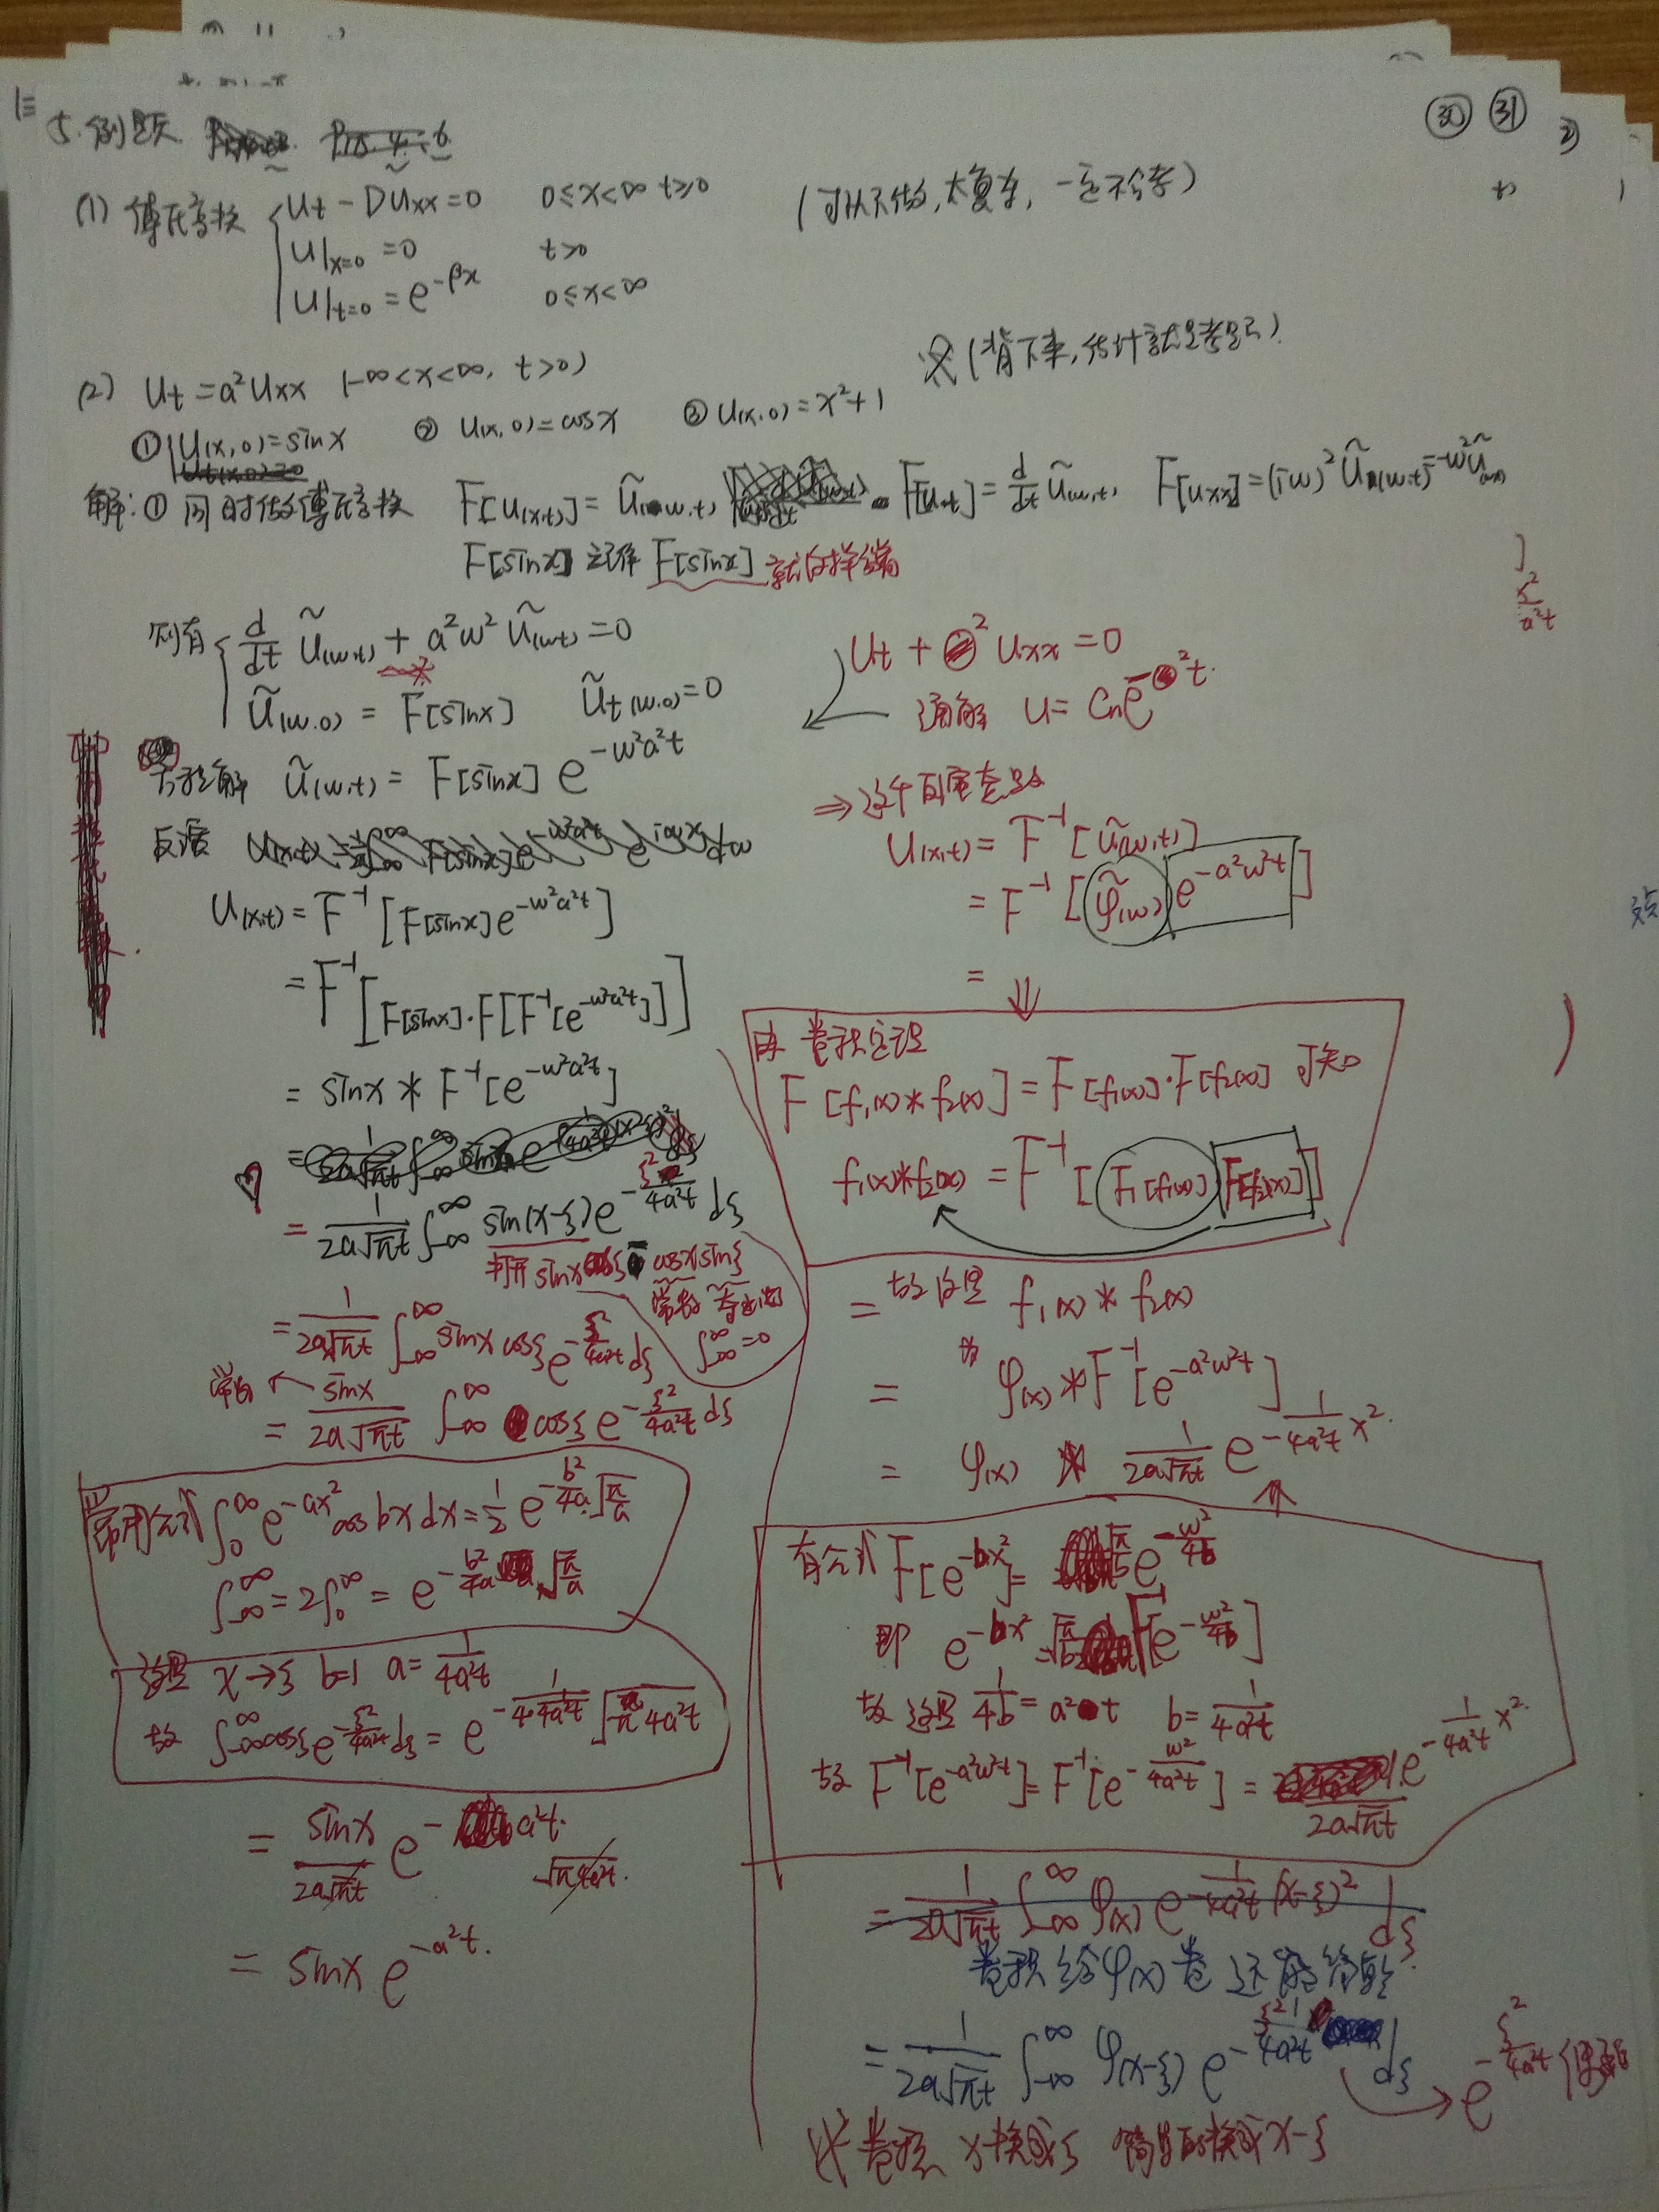 5. 例题
㉚ ㉛
(1) 傅氏变换 { Ut - DUxx = 0   0≤x<∞ t≥0   (可以不做, 太复杂, 一定不会考)
U|x=0 = 0   t>0
U|t=0 = e^{-βx}   0≤x<∞
(2) Ut = a²Uxx (-∞<x<∞, t>0)   (背下来, 估计就是考题)
① U(x,0) = sinx   ② U(x,0) = cosx   ③ U(x,0) = x²+1
解: ① 同时做傅氏变换 F[U(x,t)] = Ũ(w,t)   F[Ut] = d/dt Ũ(w,t)   F[Uxx] = (iw)² Ũ(w,t) = -w²Ũ
F[sinx] 记作 F[sinx]
则有 { d/dt Ũ(w,t) + a²w² Ũ(w,t) = 0
Ũ(w,0) = F[sinx]   Ũt(w,0) = 0
方程解 Ũ(w,t) = F[sinx] e^{-w²a²t}
反演
U(x,t) = F⁻¹[F[sinx] e^{-w²a²t}]
= F⁻¹[F[sinx]·F[F⁻¹[e^{-w²a²t}]]]
= sinx * F⁻¹[e^{-w²a²t}]
= 1/(2a√(πt)) ∫_{-∞}^{∞} sin(x-ξ) e^{-ξ²/(4a²t)} dξ
打开 sinx cosξ - cosx sinξ
常数 奇函数
∫_{-∞}^{∞} = 0
= 1/(2a√(πt)) ∫_{-∞}^{∞} sinx cosξ e^{-ξ²/(4a²t)} dξ
常数 ← = sinx/(2a√(πt)) ∫_{-∞}^{∞} cosξ e^{-ξ²/(4a²t)} dξ
常用公式 ∫_0^∞ e^{-ax²} cos bx dx = 1/2 e^{-b²/4a} √(π/a)
∫_{-∞}^{∞} = 2∫_0^∞ = e^{-b²/4a} √(π/a)
这里 x→ξ b=1 a = 1/(4a²t)
故 ∫_{-∞}^{∞} cosξ e^{-ξ²/(4a²t)} dξ = e^{-1/(4·1/(4a²t))} √(π4a²t)
= sinx/(2a√(πt)) e^{-a²t} √(π4a²t)
= sinx e^{-a²t}.
Ut + ² Uxx = 0
通解 U = Cn e^{-²t}
⇒
U(x,t) = F⁻¹[Ũ(w,t)]
= F⁻¹[φ̃(w) e^{-a²w²t}]
= ⇓
由卷积定理
F[f₁(x)*f₂(x)] = F[f₁(x)]·F[f₂(x)] 可知
f₁(x)*f₂(x) = F⁻¹[F[f₁(x)] F[f₂(x)]]
= 故这里 f₁(x) * f₂(x)
为
= φ(x) * F⁻¹[e^{-a²w²t}]
= φ(x) * 1/(2a√(πt)) e^{-1/(4a²t) x²}
有公式 F[e^{-bx²}] = √(π/b) e^{-w²/4b}
即 e^{-bx²} = √(π/b) F⁻¹[e^{-w²/4b}]
故 这里 1/4b = a²t   b = 1/(4a²t)
故 F⁻¹[e^{-a²w²t}] = F⁻¹[e^{-w²/(4a²t)}] = 1/(2a√(πt)) e^{-1/(4a²t) x²}
= 1/(2a√(πt)) ∫_{-∞}^{∞} φ(x) e^{-1/(4a²t) (x-ξ)²} dξ
卷积给φ(x)卷
= 1/(2a√(πt)) ∫_{-∞}^{∞} φ(x-ξ) e^{-ξ²/(4a²t)} dξ → e^{-ξ²/(4a²t)}
卷积 x换成ξ 换成x-ξ